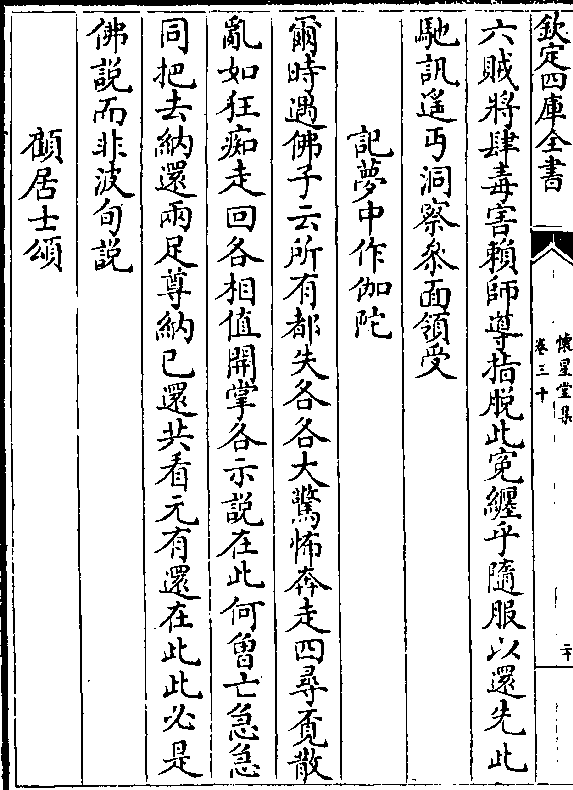 欽定四庫全書
懷星堂集
卷三十
二十
六賊將肆毒害賴師導指脫此寃纏乎隨服以還先此
馳訊遥丐洞察叅面領受
記夢中作伽陀
爾時遇佛子云所有都失各各大驚怖奔走四尋覔散
亂如狂痴走回各相值開掌各示説在此何曽亡急急
同把去納還兩足尊納已還共看元有還在此此必是
佛説而非波旬説
顧居士頌